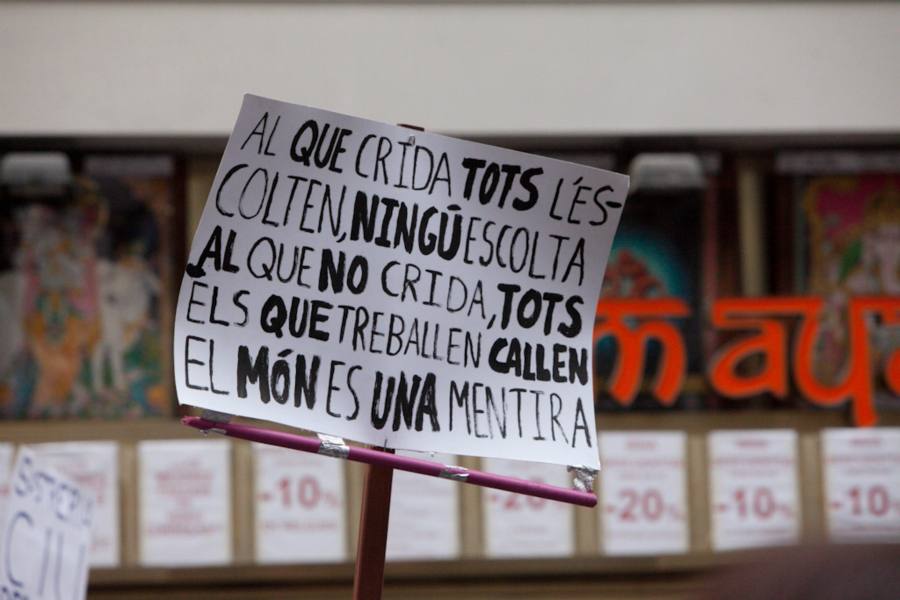 AL QUE CRIDA TOTS L'ÉS-
COLTEN, NINGÚ ESCOLTA
AL QUE NO CRIDA, TOTS
ELS QUE TREBALLEN CALLEN
EL MÓN ES UNA MENTIRA
maya
-10%
-20%
-20%
-10%
-10